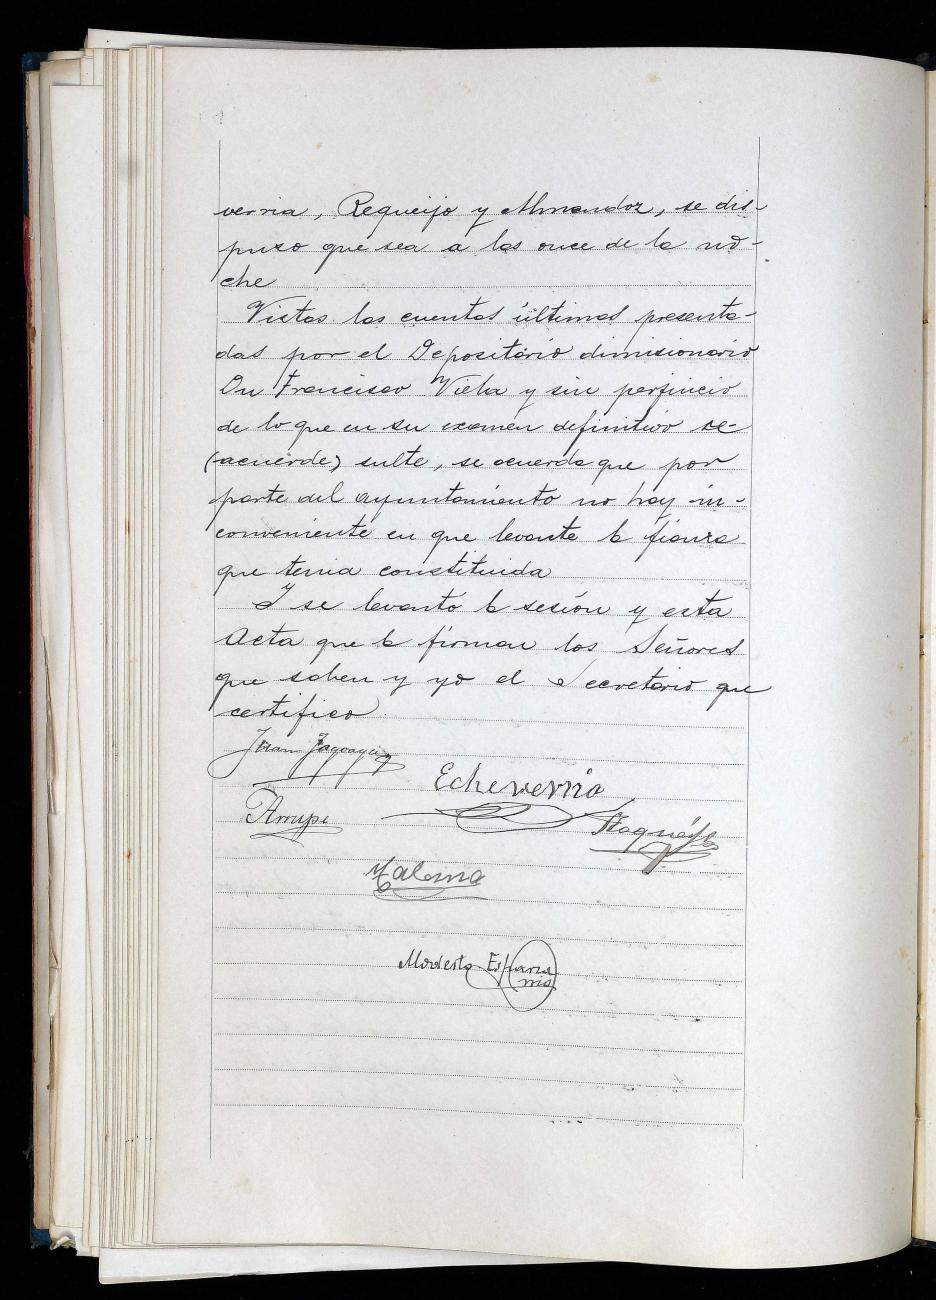 verria, Requeijo y Almandoz, se dis-
puso que sea a las once de la no-
che
Vistas las cuentas últimas presenta-
das por el Depositario dimisionario
Dn Francisco Viela y sin perjuicio
de lo que en su examen definitivo re-
(acuerde) sulte, se acuerda que por
parte del ayuntamiento no hay in-
conveniente en que levante la fianza
que tenia constituida
Y se levantó la sesión y esta
Acta que la firman los Señores
que saben y yo el Secretario que
certifico.
Juan
Echeverria
Arrupe
Modesto